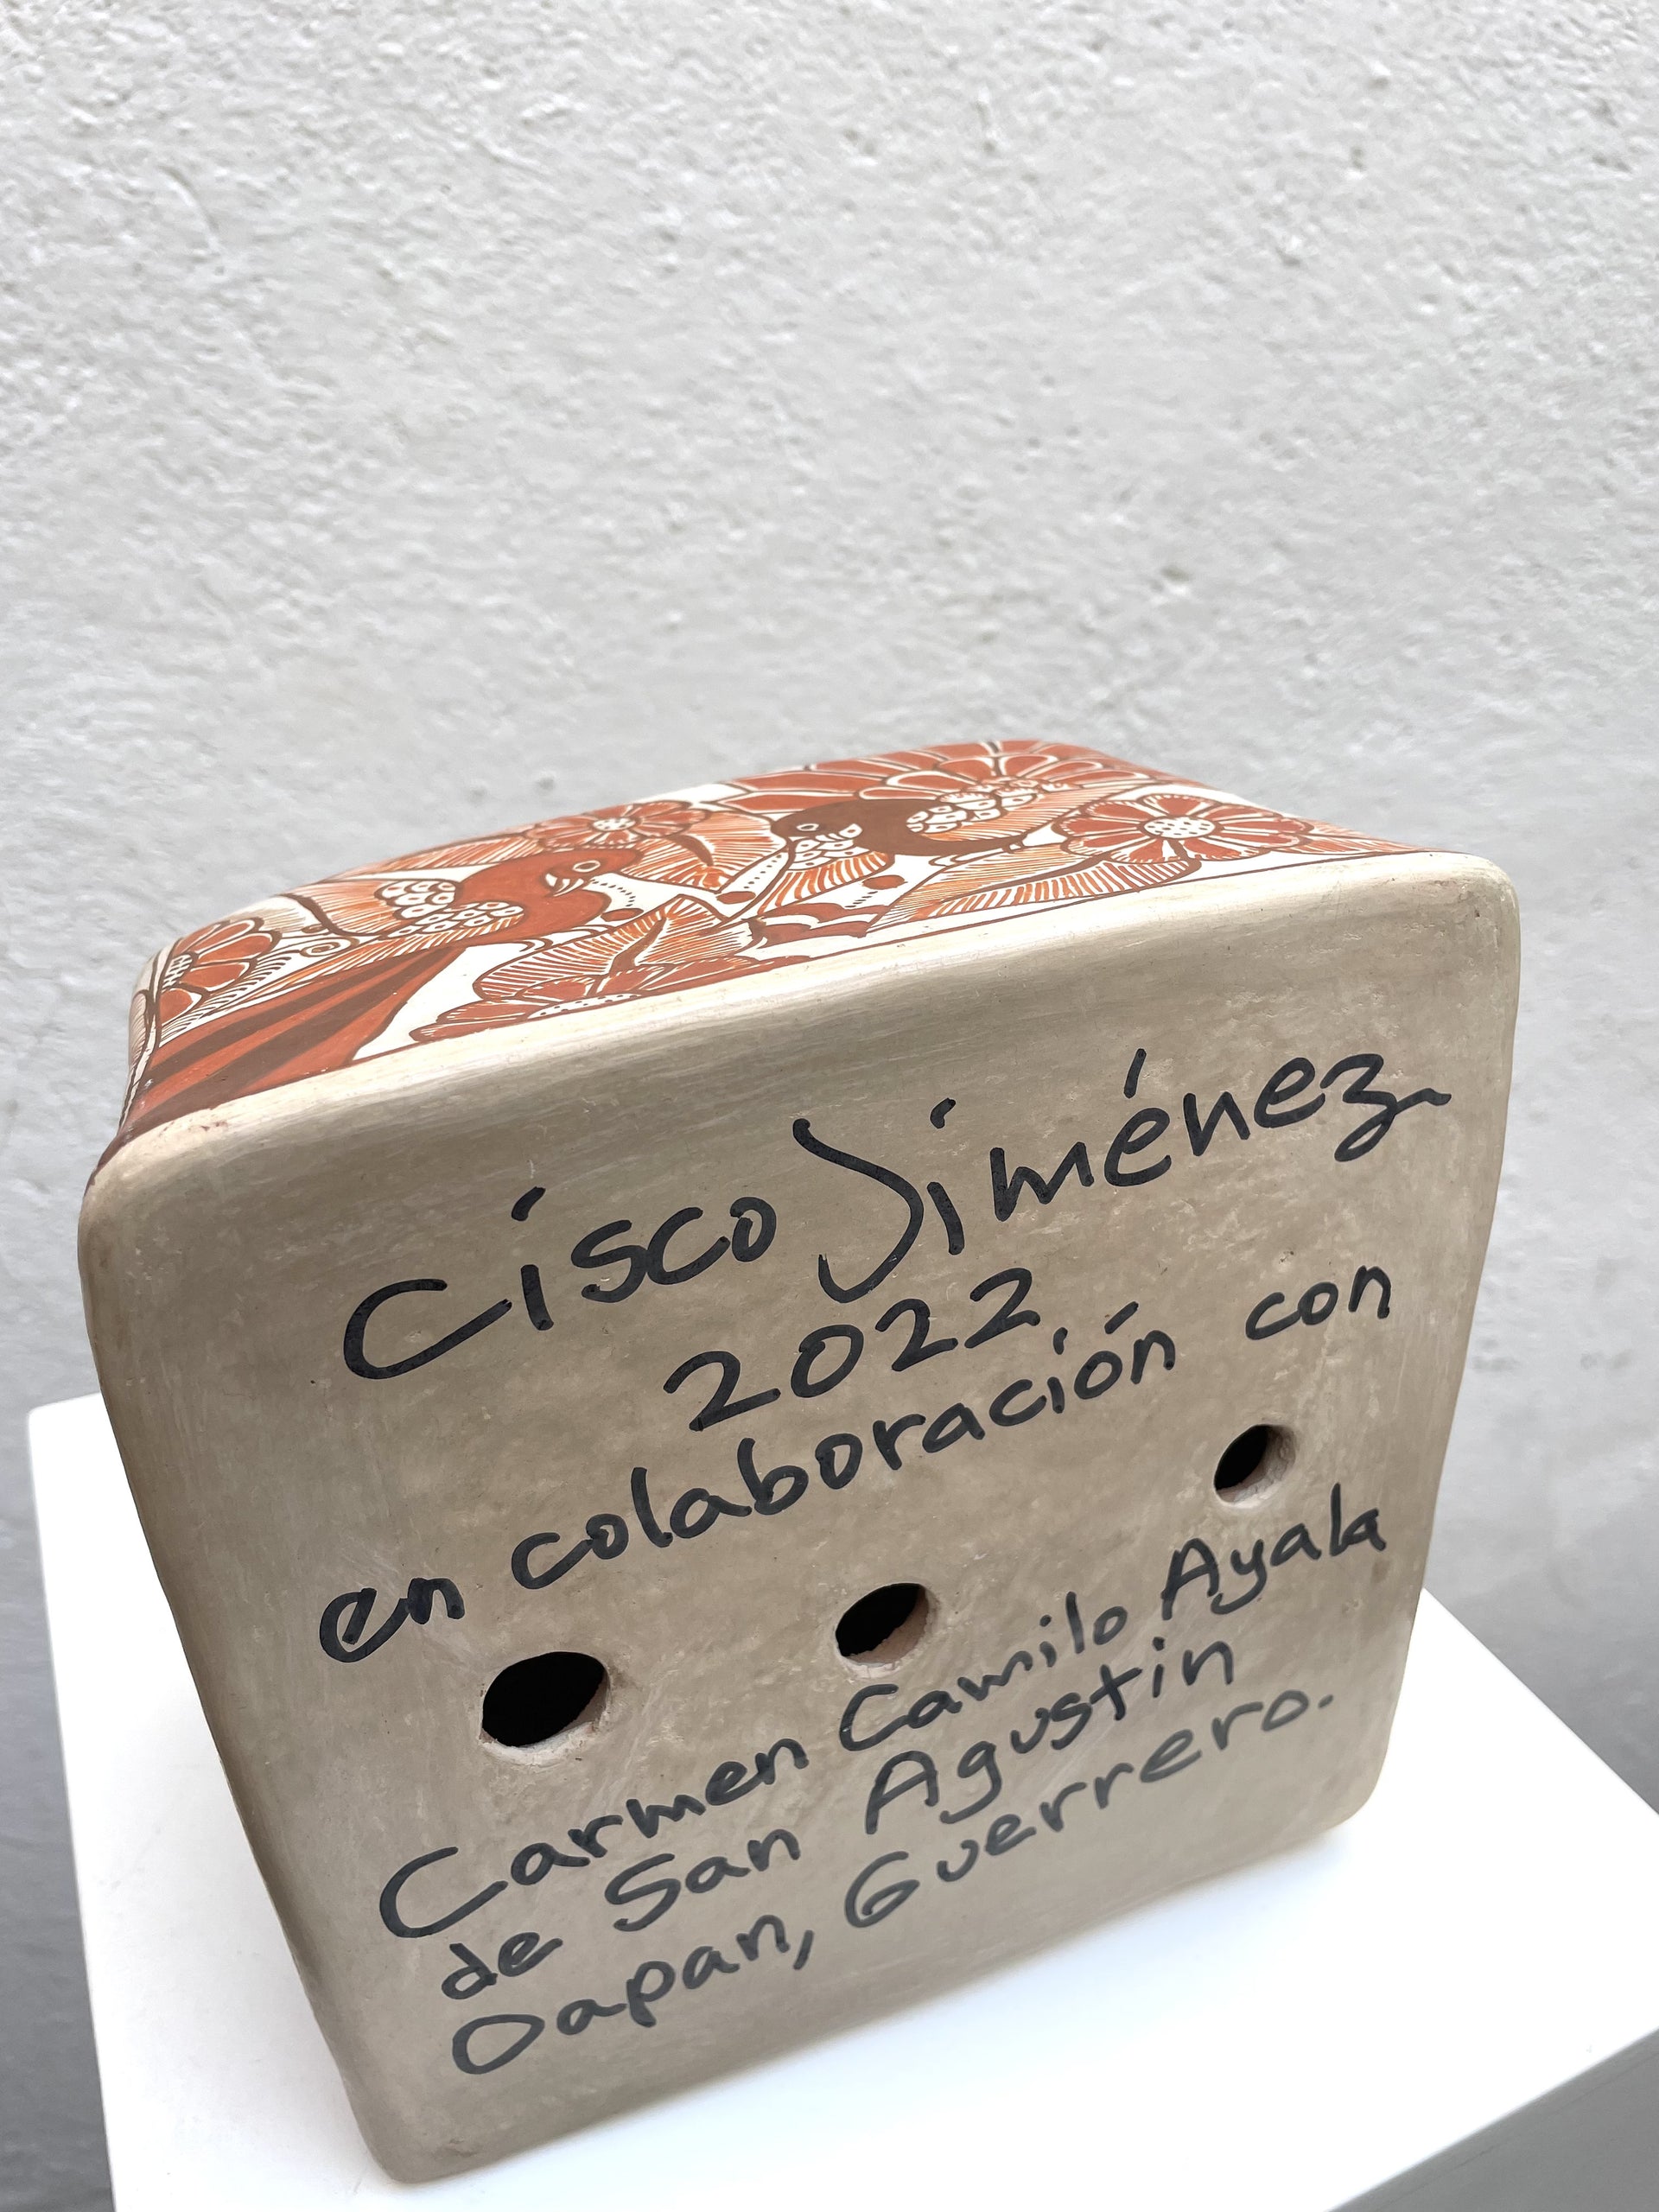 Cisco Jiménez
2022
en colaboración con
Carmen Camilo Ayala
de San Agustin
Oapan, Guerrero.